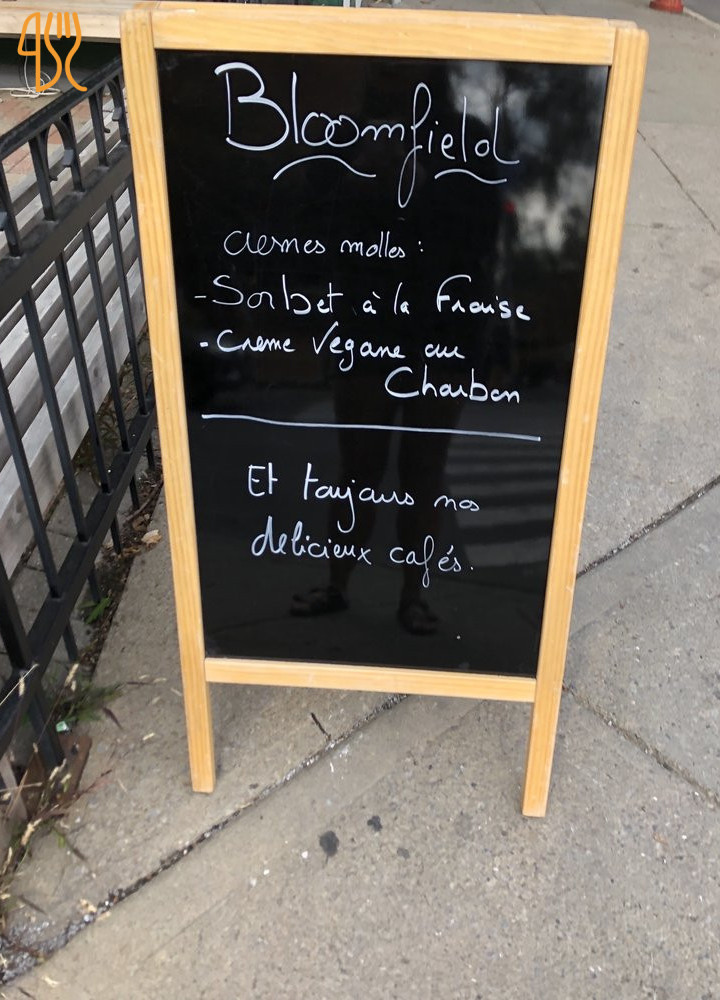 Bloomfield
cremes molles :
- Sorbet à la Fraise
- Creme Vegane au
Charbon
Et toujours nos
delicieux cafés.